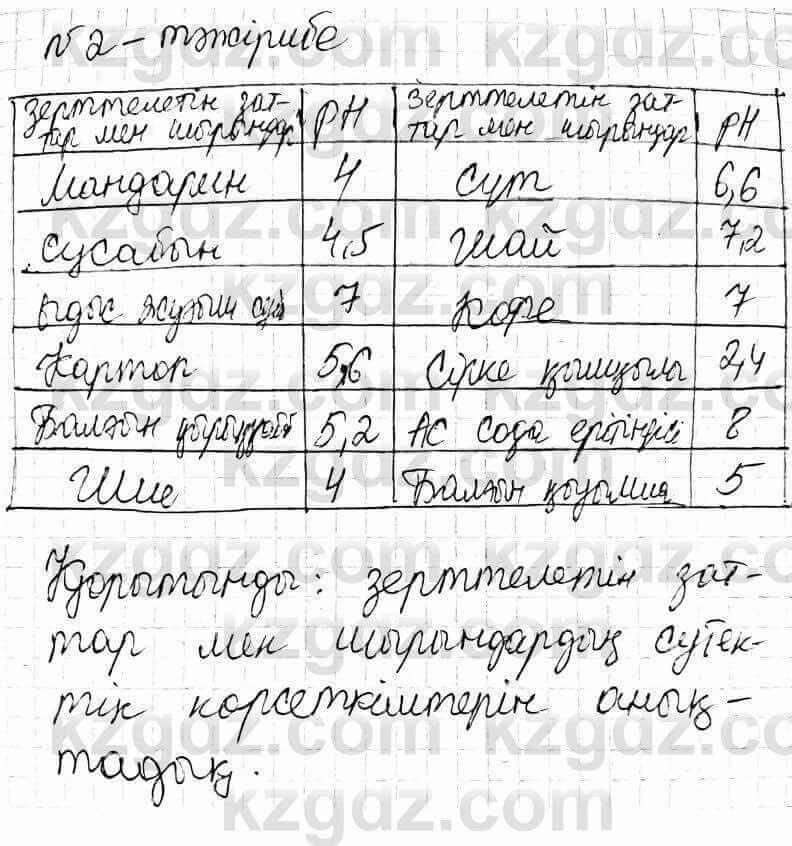 №2 – тәжірибе
Зерттелетін зат- | РН | Зерттелетін зат- | РН
тар мен шырындар | тар мен шырындар
Мандарин | 4 | Сүт | 6,6
Сусабын | 4,5 | Шай | 7,2
Ыдыс жуғыш | 7 | Кофе | 7
Картоп | 5,6 | Сірке қышқылы | 2,4
Балғын қырыққабат | 5,2 | Ас сода ерітіндісі | 8
Шие | 4 | Балғын | 5
Қорытынды: зерттелетін зат-
тар мен шырындардың сутек-
тік көрсеткіштерін анық-
тадық.
kzgdz.com